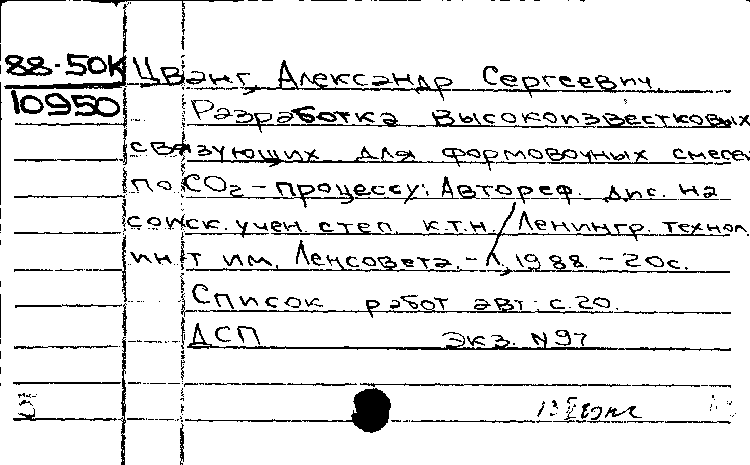 88-50К Цванг, Александр Сергеевич.
10950 Разработка высокоизвестковых
связующих для формовочных смесей
по CO2-процессу: Автореф. дис. на
соиск. учен. степ. к.т.н. / Ленингр. технол.
ин-т им. Ленсовета. - Л, 1988 - 20с.
Список работ авт.: с.20.
ДСП Экз. N97